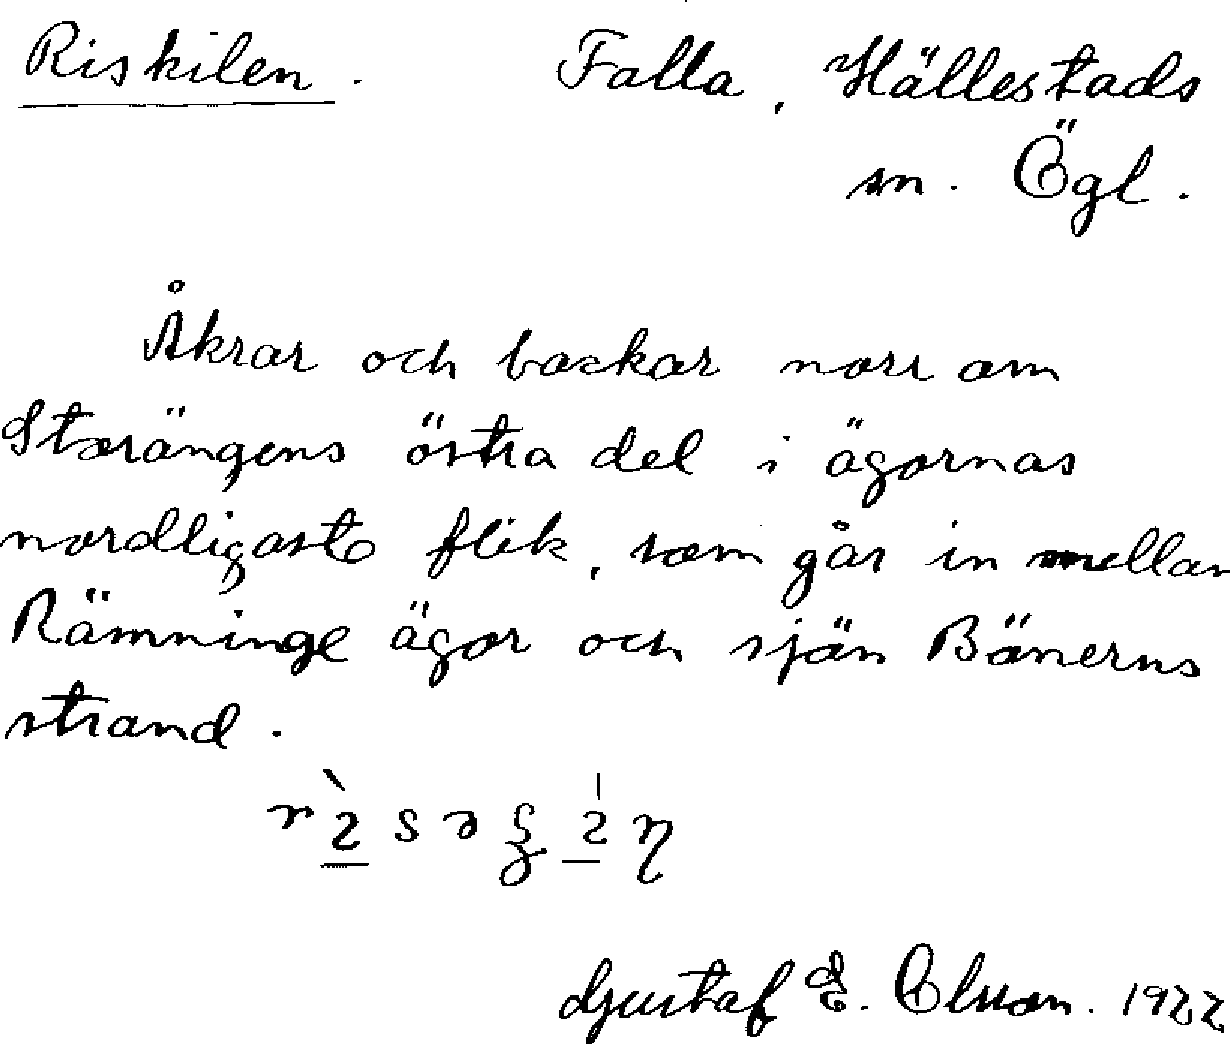 Riskilen. Falla, Hällestads
sn. Ögl.
Åkrar och backar norr om
Storängens östra del i ägornas
nordligaste flik, som går in mellan
Rämninge ägor och sjön Bönerns
strand.
Gustaf E. Olsson. 1922